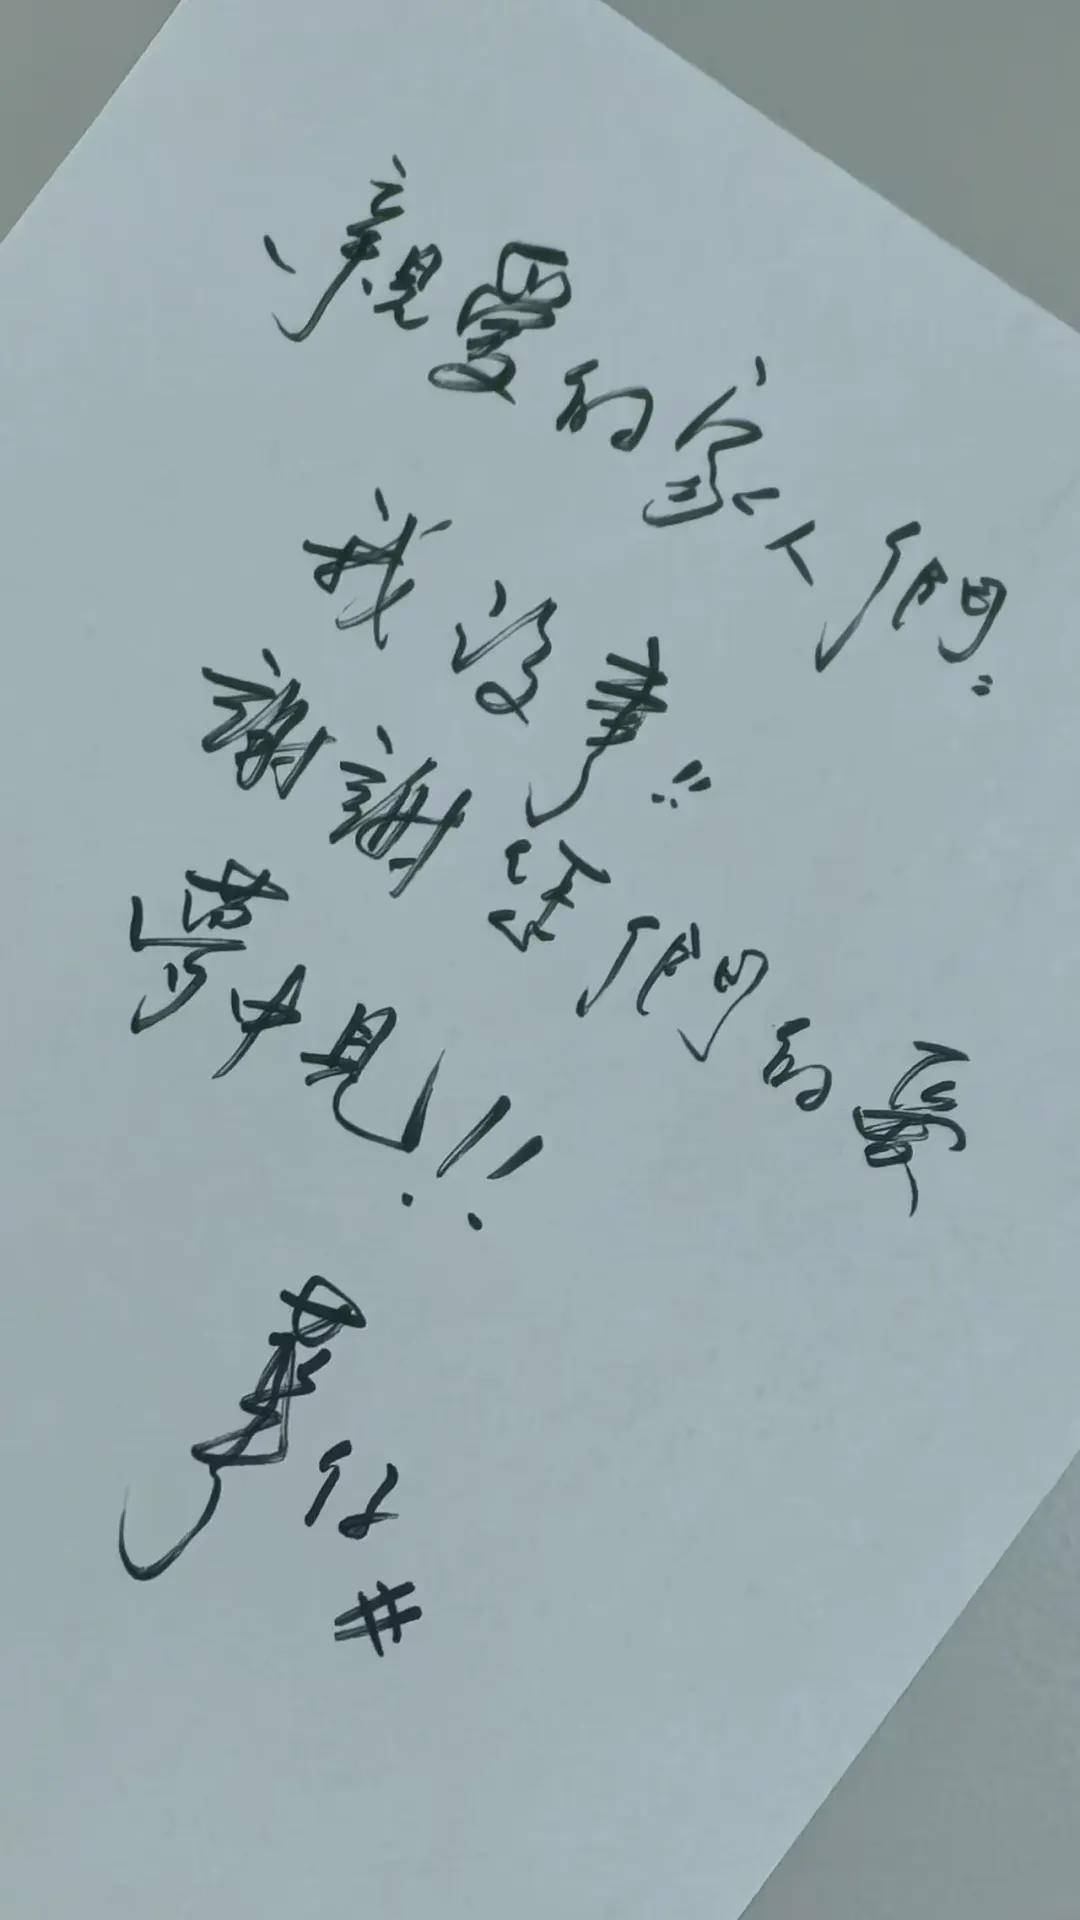 親愛的家人們:
我沒事!!
謝謝您們的愛
夢中見!!